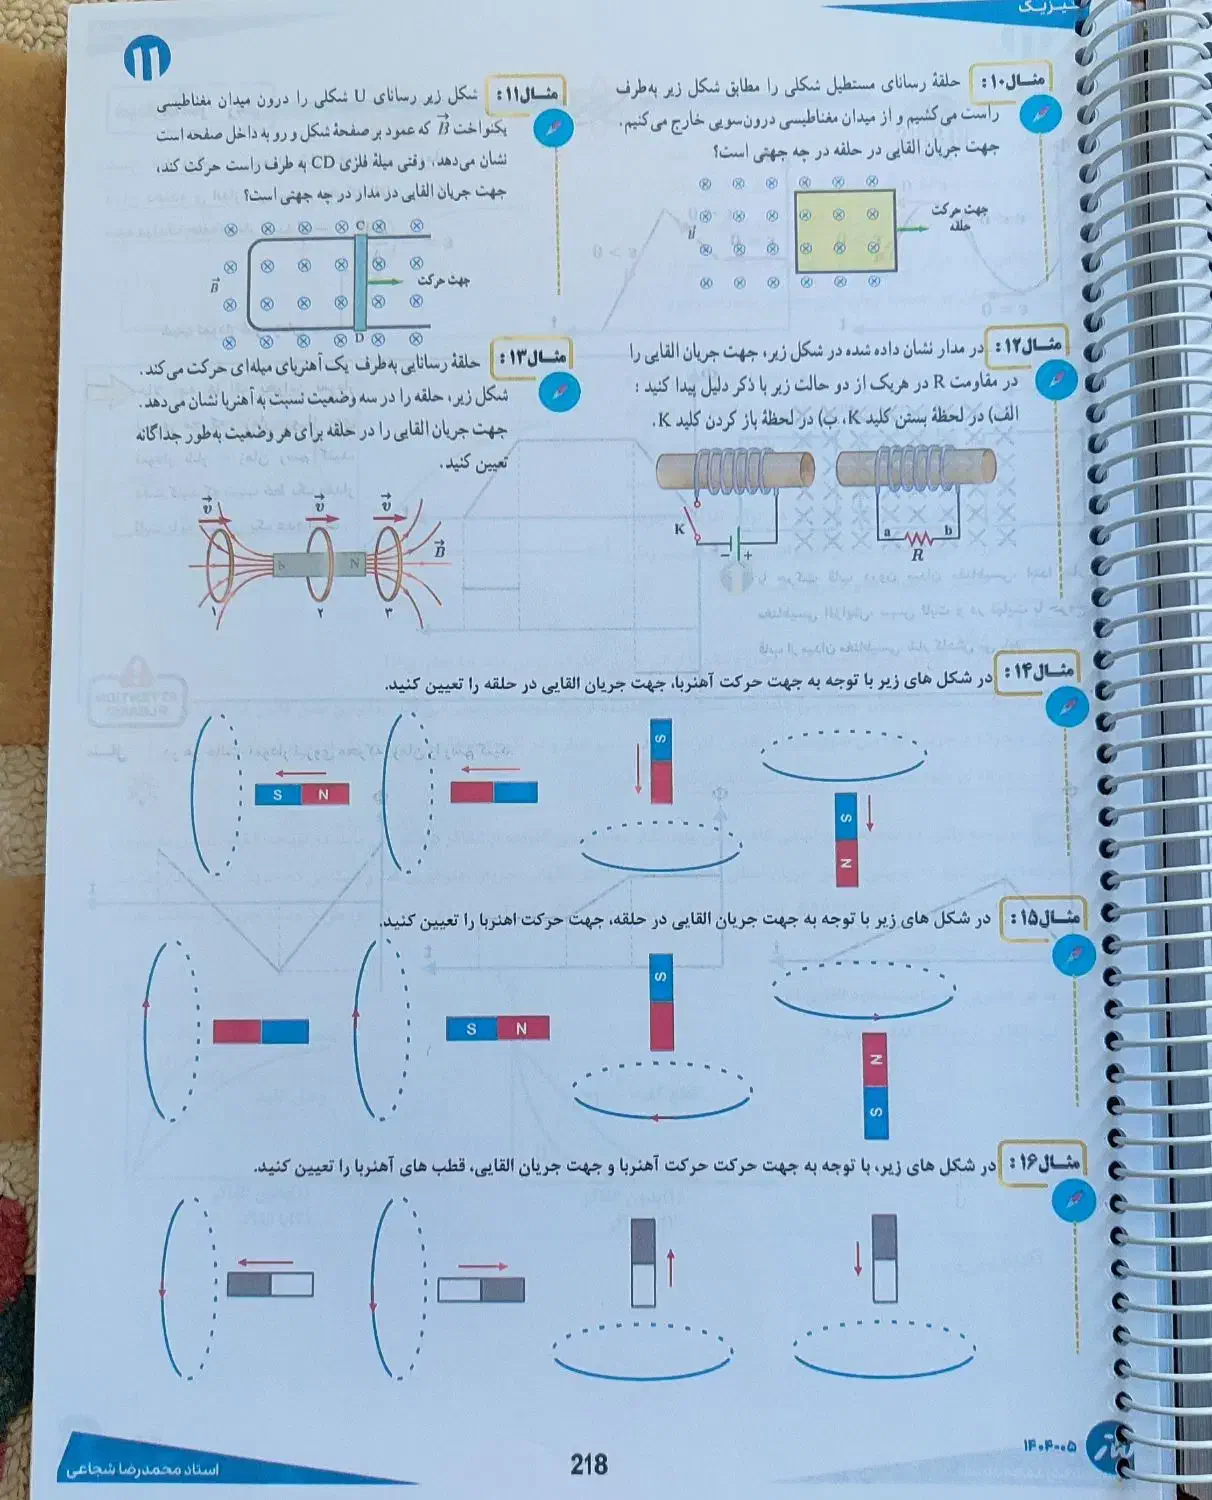 فیزیک
۱۱
مثال۱۰: حلقهٔ رسانای مستطیل شکلی را مطابق شکل زیر به‌طرف
راست می‌کشیم و از میدان مغناطیسی درون‌سویی خارج می‌کنیم.
جهت جریان القایی در حلقه در چه جهتی است؟
جهت حرکت
حلقه
B
مثال۱۱: شکل زیر رسانای U شکلی را درون میدان مغناطیسی
یکنواخت B که عمود بر صفحهٔ شکل و رو به داخل صفحه است
نشان می‌دهد، وقتی میلهٔ فلزی CD به طرف راست حرکت کند،
جهت جریان القایی در مدار در چه جهتی است؟
C
B
جهت حرکت
D
مثال۱۲: در مدار نشان داده شده در شکل زیر، جهت جریان القایی را
در مقاومت R در هریک از دو حالت زیر با ذکر دلیل پیدا کنید :
الف) در لحظهٔ بستن کلید K، ب) در لحظهٔ باز کردن کلید K.
K
- +
a b
R
مثال۱۳: حلقهٔ رسانایی به‌طرف یک آهنربای میله‌ای حرکت می‌کند.
شکل زیر، حلقه را در سه وضعیت نسبت به آهنربا نشان می‌دهد.
جهت جریان القایی را در حلقه برای هر وضعیت به‌طور جداگانه
تعیین کنید.
v v v
S N B
۱ ۲ ۳
مثال۱۴: در شکل های زیر با توجه به جهت حرکت آهنربا، جهت جریان القایی در حلقه را تعیین کنید.
S N
S
S
N
مثال۱۵: در شکل های زیر با توجه به جهت جریان القایی در حلقه، جهت حرکت اهنربا را تعیین کنید.
S N
S
N
S
مثال۱۶: در شکل های زیر، با توجه به جهت حرکت حرکت آهنربا و جهت جریان القایی، قطب های آهنربا را تعیین کنید.
۱۴۰۴-۰۵
218
استاد محمدرضا شجاعی